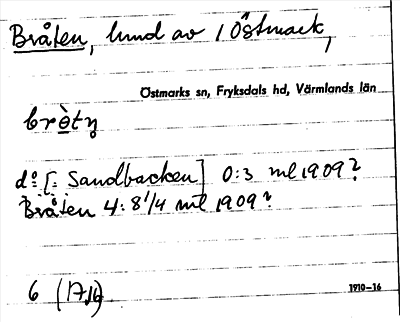 Bråten, lund av 1 Östmark,
Östmarks sn, Fryksdals hd, Värmlands län
brètn̥
do [: Sandbacken] 0:3 ml 1909?
Bråten 4: 8 1/4 ml 1909?
6 (17,16)
1910-16